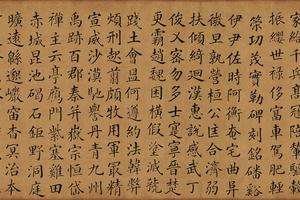 家給千兵高冠陪輦驅轂
振纓世祿侈富車駕肥輕
策功茂實勒碑刻銘磻谿
伊尹佐時阿衡奄宅曲阜
微旦孰營桓公匡合濟弱
扶傾綺迴漢惠說感武丁
俊乂密勿多士寔寧晉楚
更霸趙魏困橫假途滅虢
踐土會盟何遵約法韓弊
煩刑起翦頗牧用軍最精
宣威沙漠馳譽丹青九州
禹跡百郡秦并嶽宗恒岱
禪主云亭鴈門紫塞雞田
赤城昆池碣石鉅野洞庭
曠遠緜邈巖岫杳冥治本